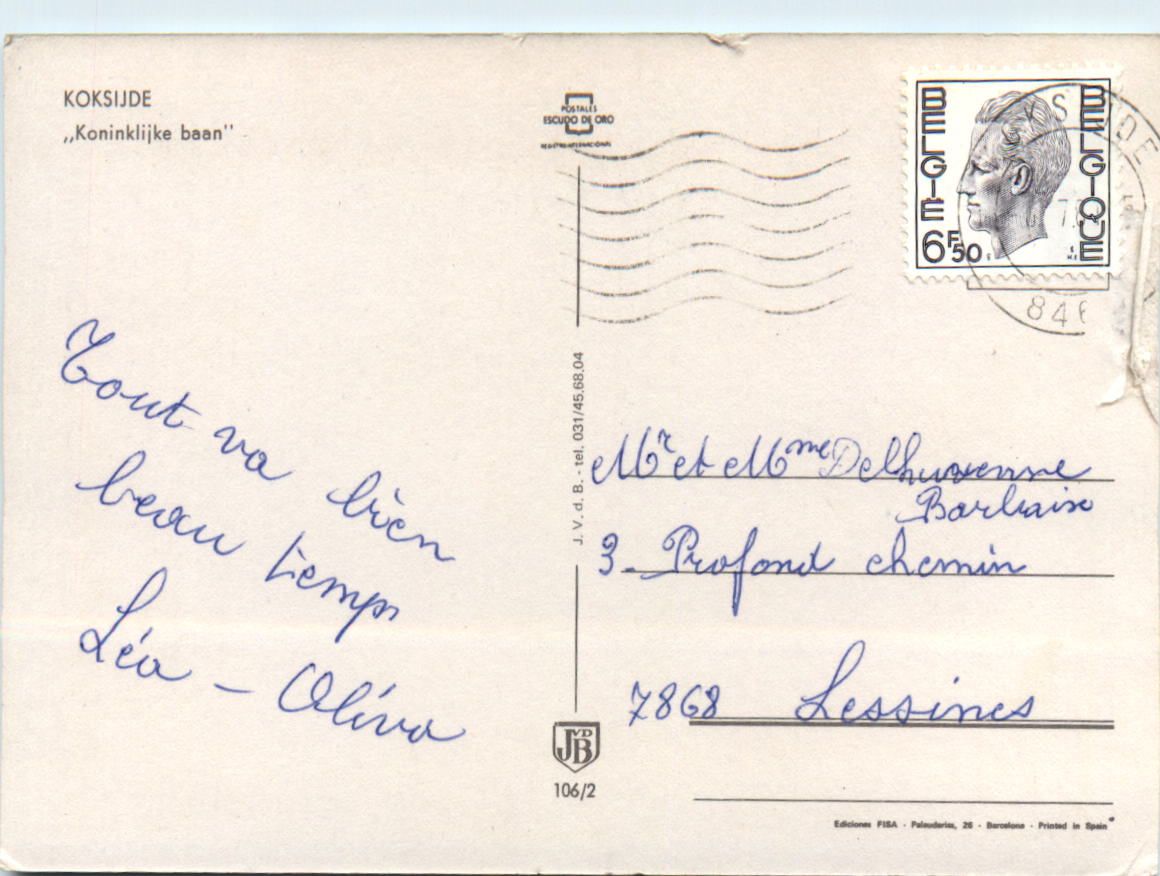 KOKSIJDE
„Koninklijke baan"
POSTALES
ESCUDO DE ORO
REGISTRO INTERNACIONAL
BELGIE
BELGIQUE
6F50
846
Tout va bien
beau temps
Léa - Oliva
J. V. d. B. - tel. 031/45.68.04
Mr et Mme
3 - Profond chemin
7868 Lessines
JVDB
106/2
Ediciones FISA - Palaudarias, 26 - Barcelona - Printed in Spain